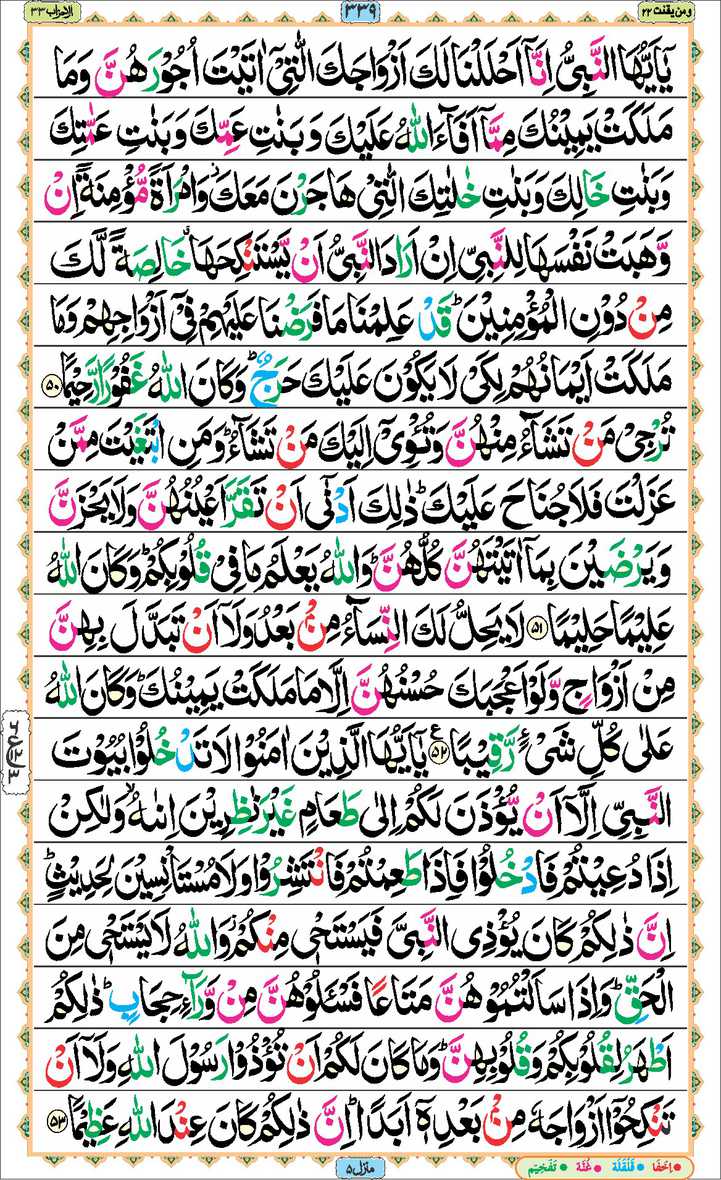 ومن یقنت ۲۲
۳۳۹
الاحزاب ۳۳
یٰۤاَیُّهَا النَّبِیُّ اِنَّاۤ اَحْلَلْنَا لَكَ اَزْوَاجَكَ الّٰتِیْۤ اٰتَیْتَ اُجُوْرَهُنَّ وَمَا
مَلَكَتْ یَمِیْنُكَ مِمَّاۤ اَفَآءَ اللّٰهُ عَلَیْكَ وَبَنٰتِ عَمِّكَ وَبَنٰتِ عَمّٰتِكَ
وَبَنٰتِ خَالِكَ وَبَنٰتِ خٰلٰتِكَ الّٰتِیْ هَاجَرْنَ مَعَكَ٘ وَامْرَاَةً مُّؤْمِنَةً اِنْ
وَّهَبَتْ نَفْسَهَا لِلنَّبِیِّ اِنْ اَرَادَ النَّبِیُّ اَنْ یَّسْتَنْكِحَهَاۗ خَالِصَةً لَّكَ
مِنْ دُوْنِ الْمُؤْمِنِیْنَؕ قَدْ عَلِمْنَا مَا فَرَضْنَا عَلَیْهِمْ فِیْۤ اَزْوَاجِهِمْ وَمَا
مَلَكَتْ اَیْمَانُهُمْ لِكَیْلَا یَكُوْنَ عَلَیْكَ حَرَجٌؕ وَكَانَ اللّٰهُ غَفُوْرًا رَّحِیْمًا ۝۵۰
تُرْجِیْ مَنْ تَشَآءُ مِنْهُنَّ وَتُـْٔوِیْۤ اِلَیْكَ مَنْ تَشَآءُؕ وَمَنِ ابْتَغَیْتَ مِمَّنْ
عَزَلْتَ فَلَا جُنَاحَ عَلَیْكَؕ ذٰلِكَ اَدْنٰۤی اَنْ تَقَرَّ اَعْیُنُهُنَّ وَلَا یَحْزَنَّ
وَیَرْضَیْنَ بِمَاۤ اٰتَیْتَهُنَّ كُلُّهُنَّؕ وَاللّٰهُ یَعْلَمُ مَا فِیْ قُلُوْبِكُمْؕ وَكَانَ اللّٰهُ
عَلِیْمًا حَلِیْمًا ۝۵۱ لَا یَحِلُّ لَكَ النِّسَآءُ مِنْۢ بَعْدُ وَلَاۤ اَنْ تَبَدَّلَ بِهِنَّ
مِنْ اَزْوَاجٍ وَّلَوْ اَعْجَبَكَ حُسْنُهُنَّ اِلَّا مَا مَلَكَتْ یَمِیْنُكَؕ وَكَانَ اللّٰهُ
عَلٰی كُلِّ شَیْءٍ رَّقِیْبًا ۝۵۲ ع یٰۤاَیُّهَا الَّذِیْنَ اٰمَنُوْا لَا تَدْخُلُوْا بُیُوْتَ
النَّبِیِّ اِلَّاۤ اَنْ یُّؤْذَنَ لَكُمْ اِلٰی طَعَامٍ غَیْرَ نٰظِرِیْنَ اِنٰىهُۙ وَلٰكِنْ
اِذَا دُعِیْتُمْ فَادْخُلُوْا فَاِذَا طَعِمْتُمْ فَانْتَشِرُوْا وَلَا مُسْتَاْنِسِیْنَ لِحَدِیْثٍؕ
اِنَّ ذٰلِكُمْ كَانَ یُؤْذِی النَّبِیَّ فَیَسْتَحْیٖ مِنْكُمْ٘ وَاللّٰهُ لَا یَسْتَحْیٖ مِنَ
الْحَقِّؕ وَاِذَا سَاَلْتُمُوْهُنَّ مَتَاعًا فَسْـَٔلُوْهُنَّ مِنْ وَّرَآءِ حِجَابٍؕ ذٰلِكُمْ
اَطْهَرُ لِقُلُوْبِكُمْ وَقُلُوْبِهِنَّؕ وَمَا كَانَ لَكُمْ اَنْ تُؤْذُوْا رَسُوْلَ اللّٰهِ وَلَاۤ اَنْ
تَنْكِحُوْۤا اَزْوَاجَهٗ مِنْۢ بَعْدِهٖۤ اَبَدًاؕ اِنَّ ذٰلِكُمْ كَانَ عِنْدَ اللّٰهِ عَظِیْمًا ۝۵۳
منزل ۵
اِخفَا قَلقَلَة غُنَّة تَفخِیم